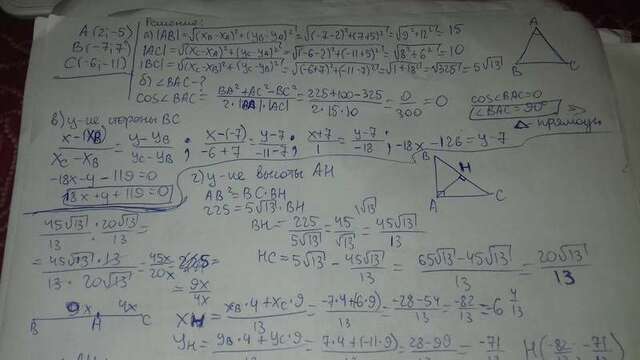 A(2;-5)
B(-7;7)
C(-6;-11)
Решение:
а) |AB|=√((xB-xA)²+(yB-yA)²)=√((-7-2)²+(7+5)²)=√(9²+12²)=15
|AC|=√((xC-xA)²+(yC-yA)²)=√((-6-2)²+(-11+5)²)=√(8²+6²)=10
|BC|=√((xC-xB)²+(yC-yB)²)=√((-6+7)²+(-11-7)²)=√(1+18²)=√325=5√13
A
B
C
б) ∠BAC-?
cos∠BAC = (BA²+AC²-BC²)/(2·|AB|·|AC|) = (225+100-325)/(2·15·10) = 0/300 = 0
cos∠BAC=0
∠BAC=90° ⇒
△ прямоуг
в) у-ие стороны BC
(x-xB)/(xC-xB) = (y-yB)/(yC-yB); (x-(-7))/(-6+7) = (y-7)/(-11-7); (x+7)/1 = (y-7)/(-18); -18x-126=y-7
-18x-y-119=0
18x+y+119=0
г) у-ие высоты AH
AB²=BC·BH
225=5√13·BH
BH = 225/(5√13) = 45/√13 = 45√13/13
B
H
A
C
45√13/13 : 20√13/13 =
= (45√13·13)/(13·20√13) = 45x/20x =
= 9x/4x
HC=5√13 - 45√13/13 = (65√13-45√13)/13 = 20√13/13
9x 4x
B A C
xH = (xB·4+xC·9)/13 = (-7·4+(-6·9))/13 = (-28-54)/13 = -82/13 = 6 4/13
yH = (yB·4+yC·9)/13 = (7·4+(-11·9))/13 = (28-99)/13 = -71/13
H(-82/13; -71/13)